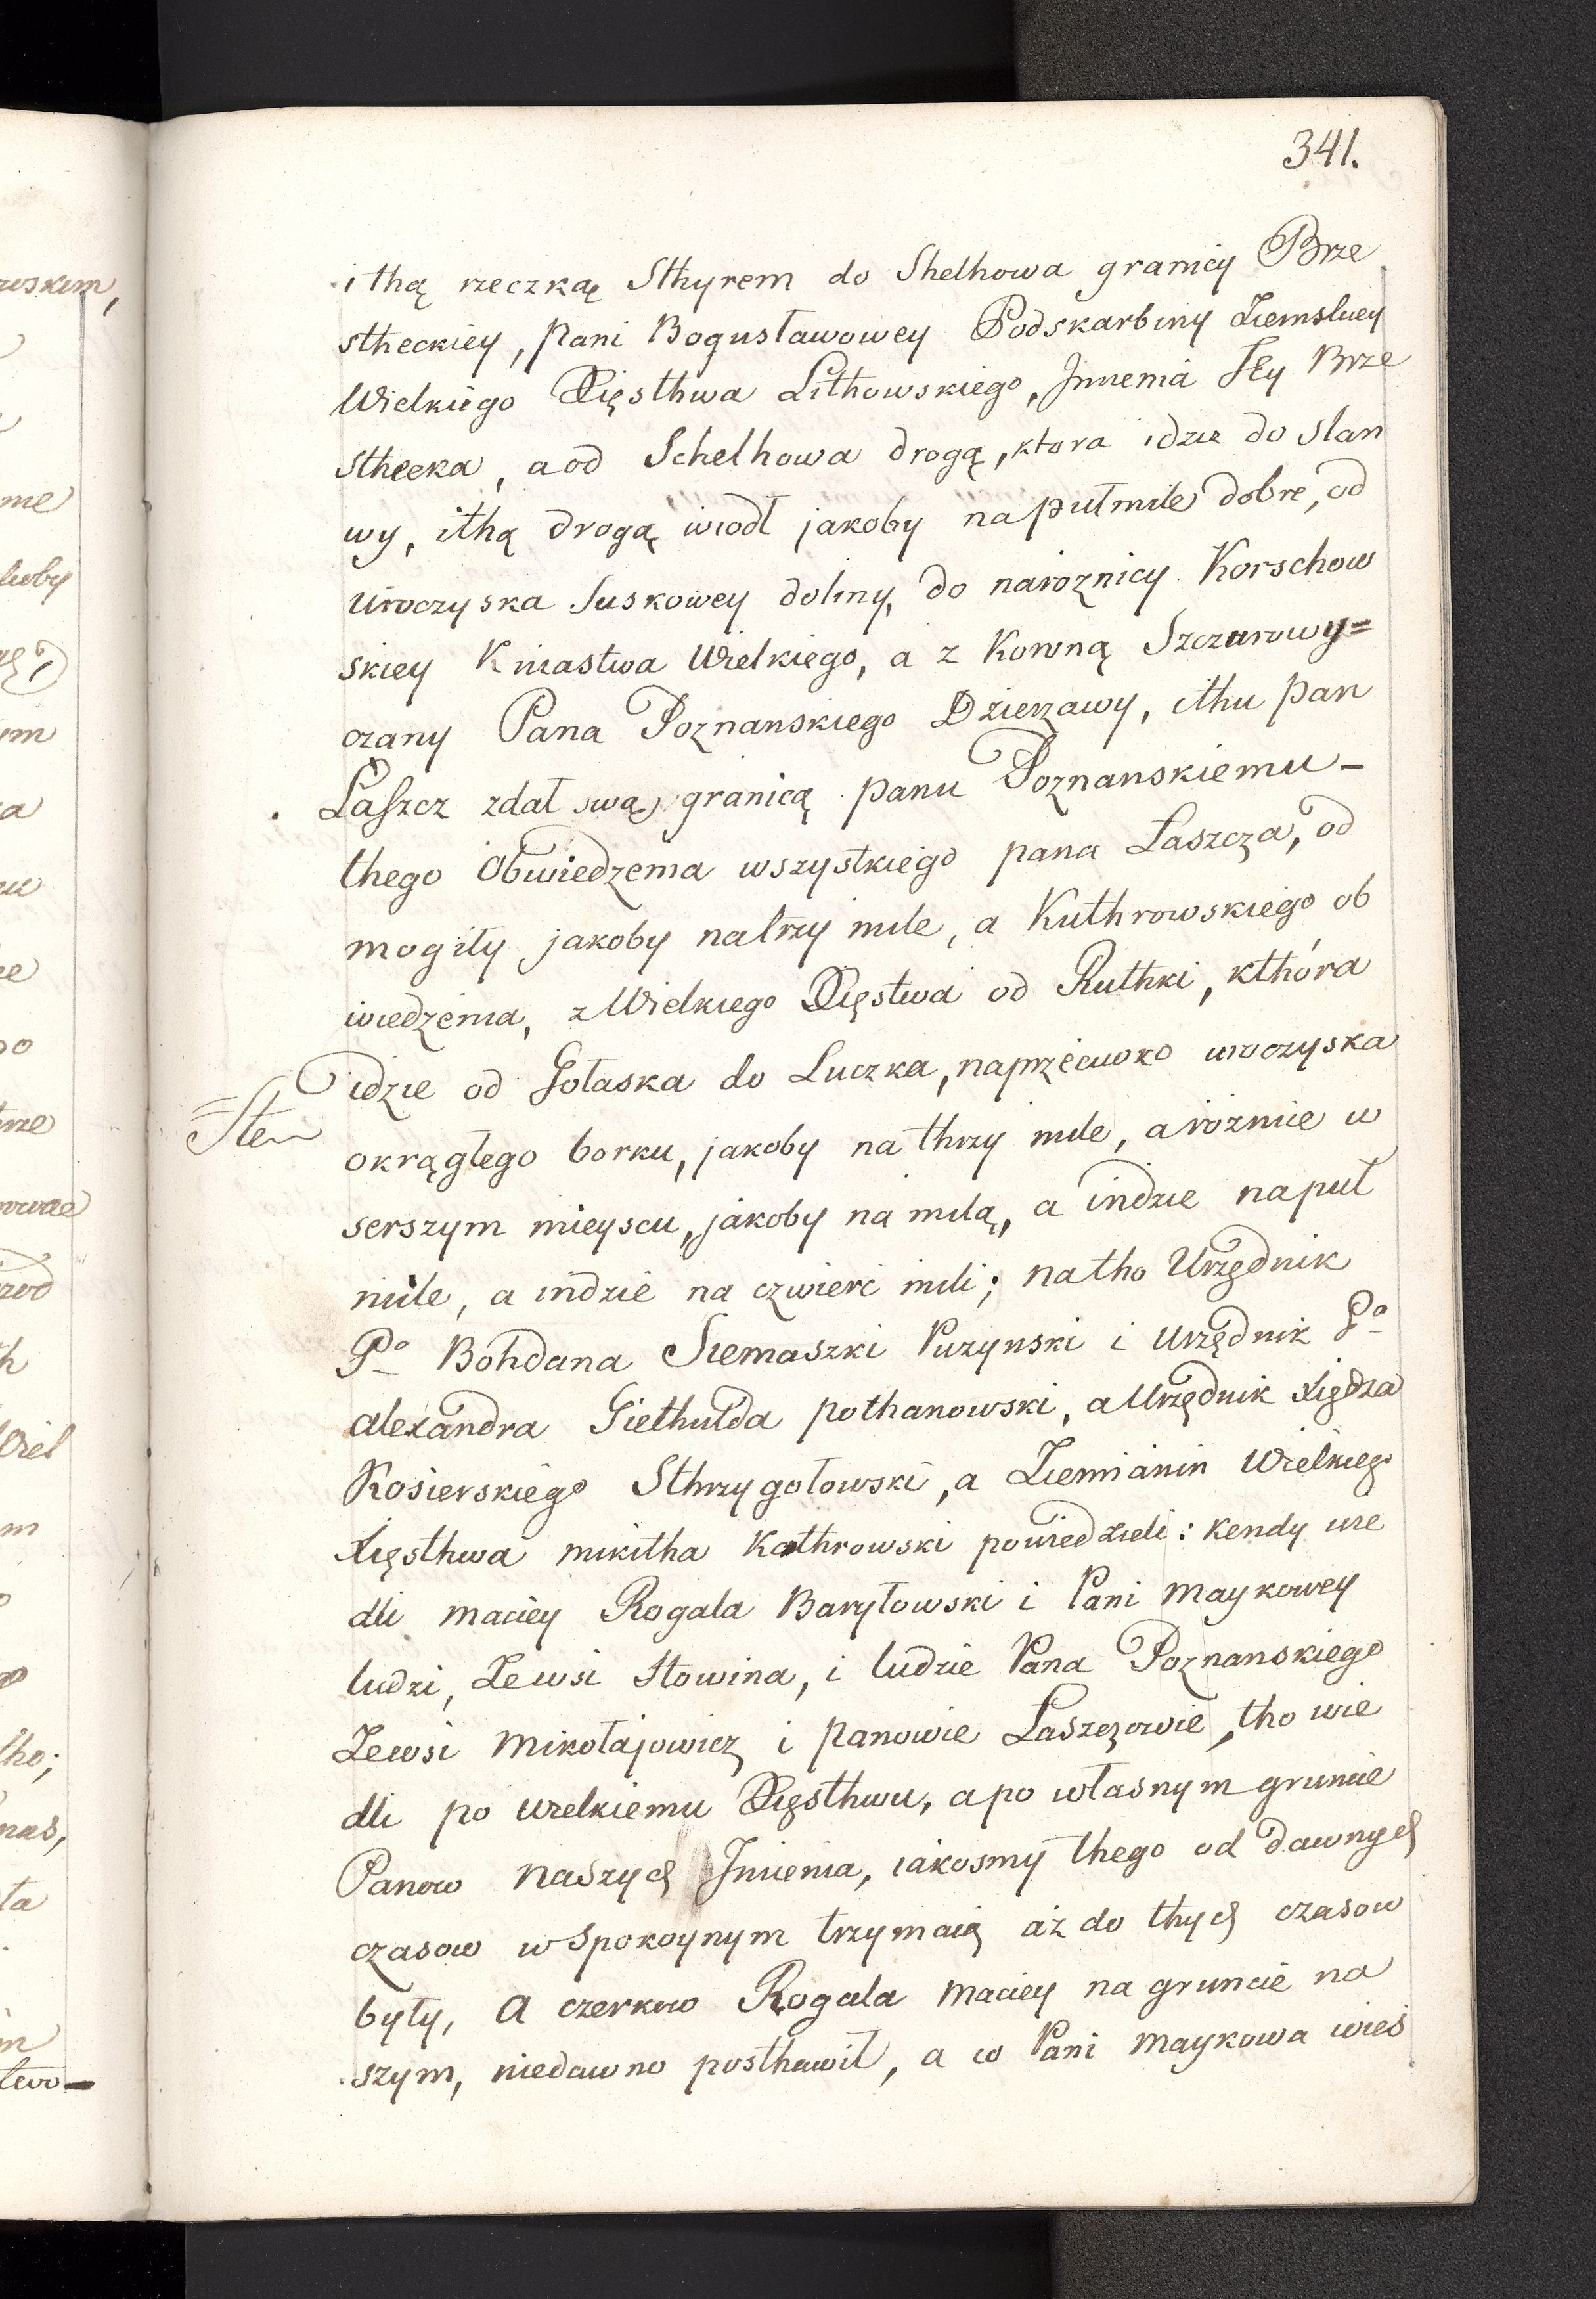 341.
i thą rzeczką Sthyrem do Shelhowa granicy Brze
stheckiey, Pani Bogusławowey Podskarbiny Ziemskiey
Wielkiego Xięsthwa Lithowskiego, Imienia Jey Brze
stheeka, a od Schelhowa drogą, ktora idzie do Slan
wy, ithą drogą wiodł jakoby na pułmile dobre, od
Uroczyska Suskowey doliny, do naroznicy Korschow
skiey Kniastwa Wielkiego, a z Korną Szczurowy=
czany Pana Poznanskiego Dzierzawy, ithu pan
Laszcz zdał swą granicą panu Poznanskiemu-
thego Obwiedzenia wszystkiego pana Laszcza, od
mogiły jakoby natrzy mile, a Kuthrowskiego ob
wiedzenia, z Wielkiego Xięstwa od Ruthki, kthóra
idzie od Gołaska do Luczka, naprzeciwko uroczyska
=Ste
okrągłego borku, jakoby na thrzy mile, a rożnie w
serszym mieyscu, jakoby na milą, a indzie na puł
mile, a indzie na czwierć mili; natho Urzędnik
Po Bohdana Siemaszki Puzynski i Urzędnik Po
alexandra Giethułda pothanowski, a Urzędnik xiędza
Kosierskiego Sthrzygołowski, a Ziemianin Wielkiego
Xięsthwa mikitha Kathrowski powiedzieli: kendy wie
dli maciey Rogala Baryłowski i Pani maykowey
ludzi, Zewsi Słowina, i ludzie Pana Poznanskiego
Zewsi mikołajowicz i panowie Laszczowie, tho wie
dli po wielkiemu Xięsthwu, a po własnym gruncie
Panow naszych Imienia, iakosmy thego od dawnych
czasow w spokoynym trzymaią aż do thych czasow
były, A czerkow Rogala maciey na gruncie na
szym, niedawno posthawił, a co Pani maykowa wieś